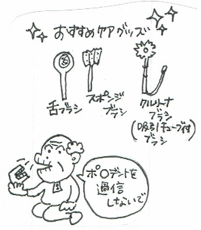 おすすめケアグッズ
舌ブラシ
スポンジ
ブラシ
クルリーナ
ブラシ
(吸引チューブ付)
ブラシ
ポロデントを
通信
しないで